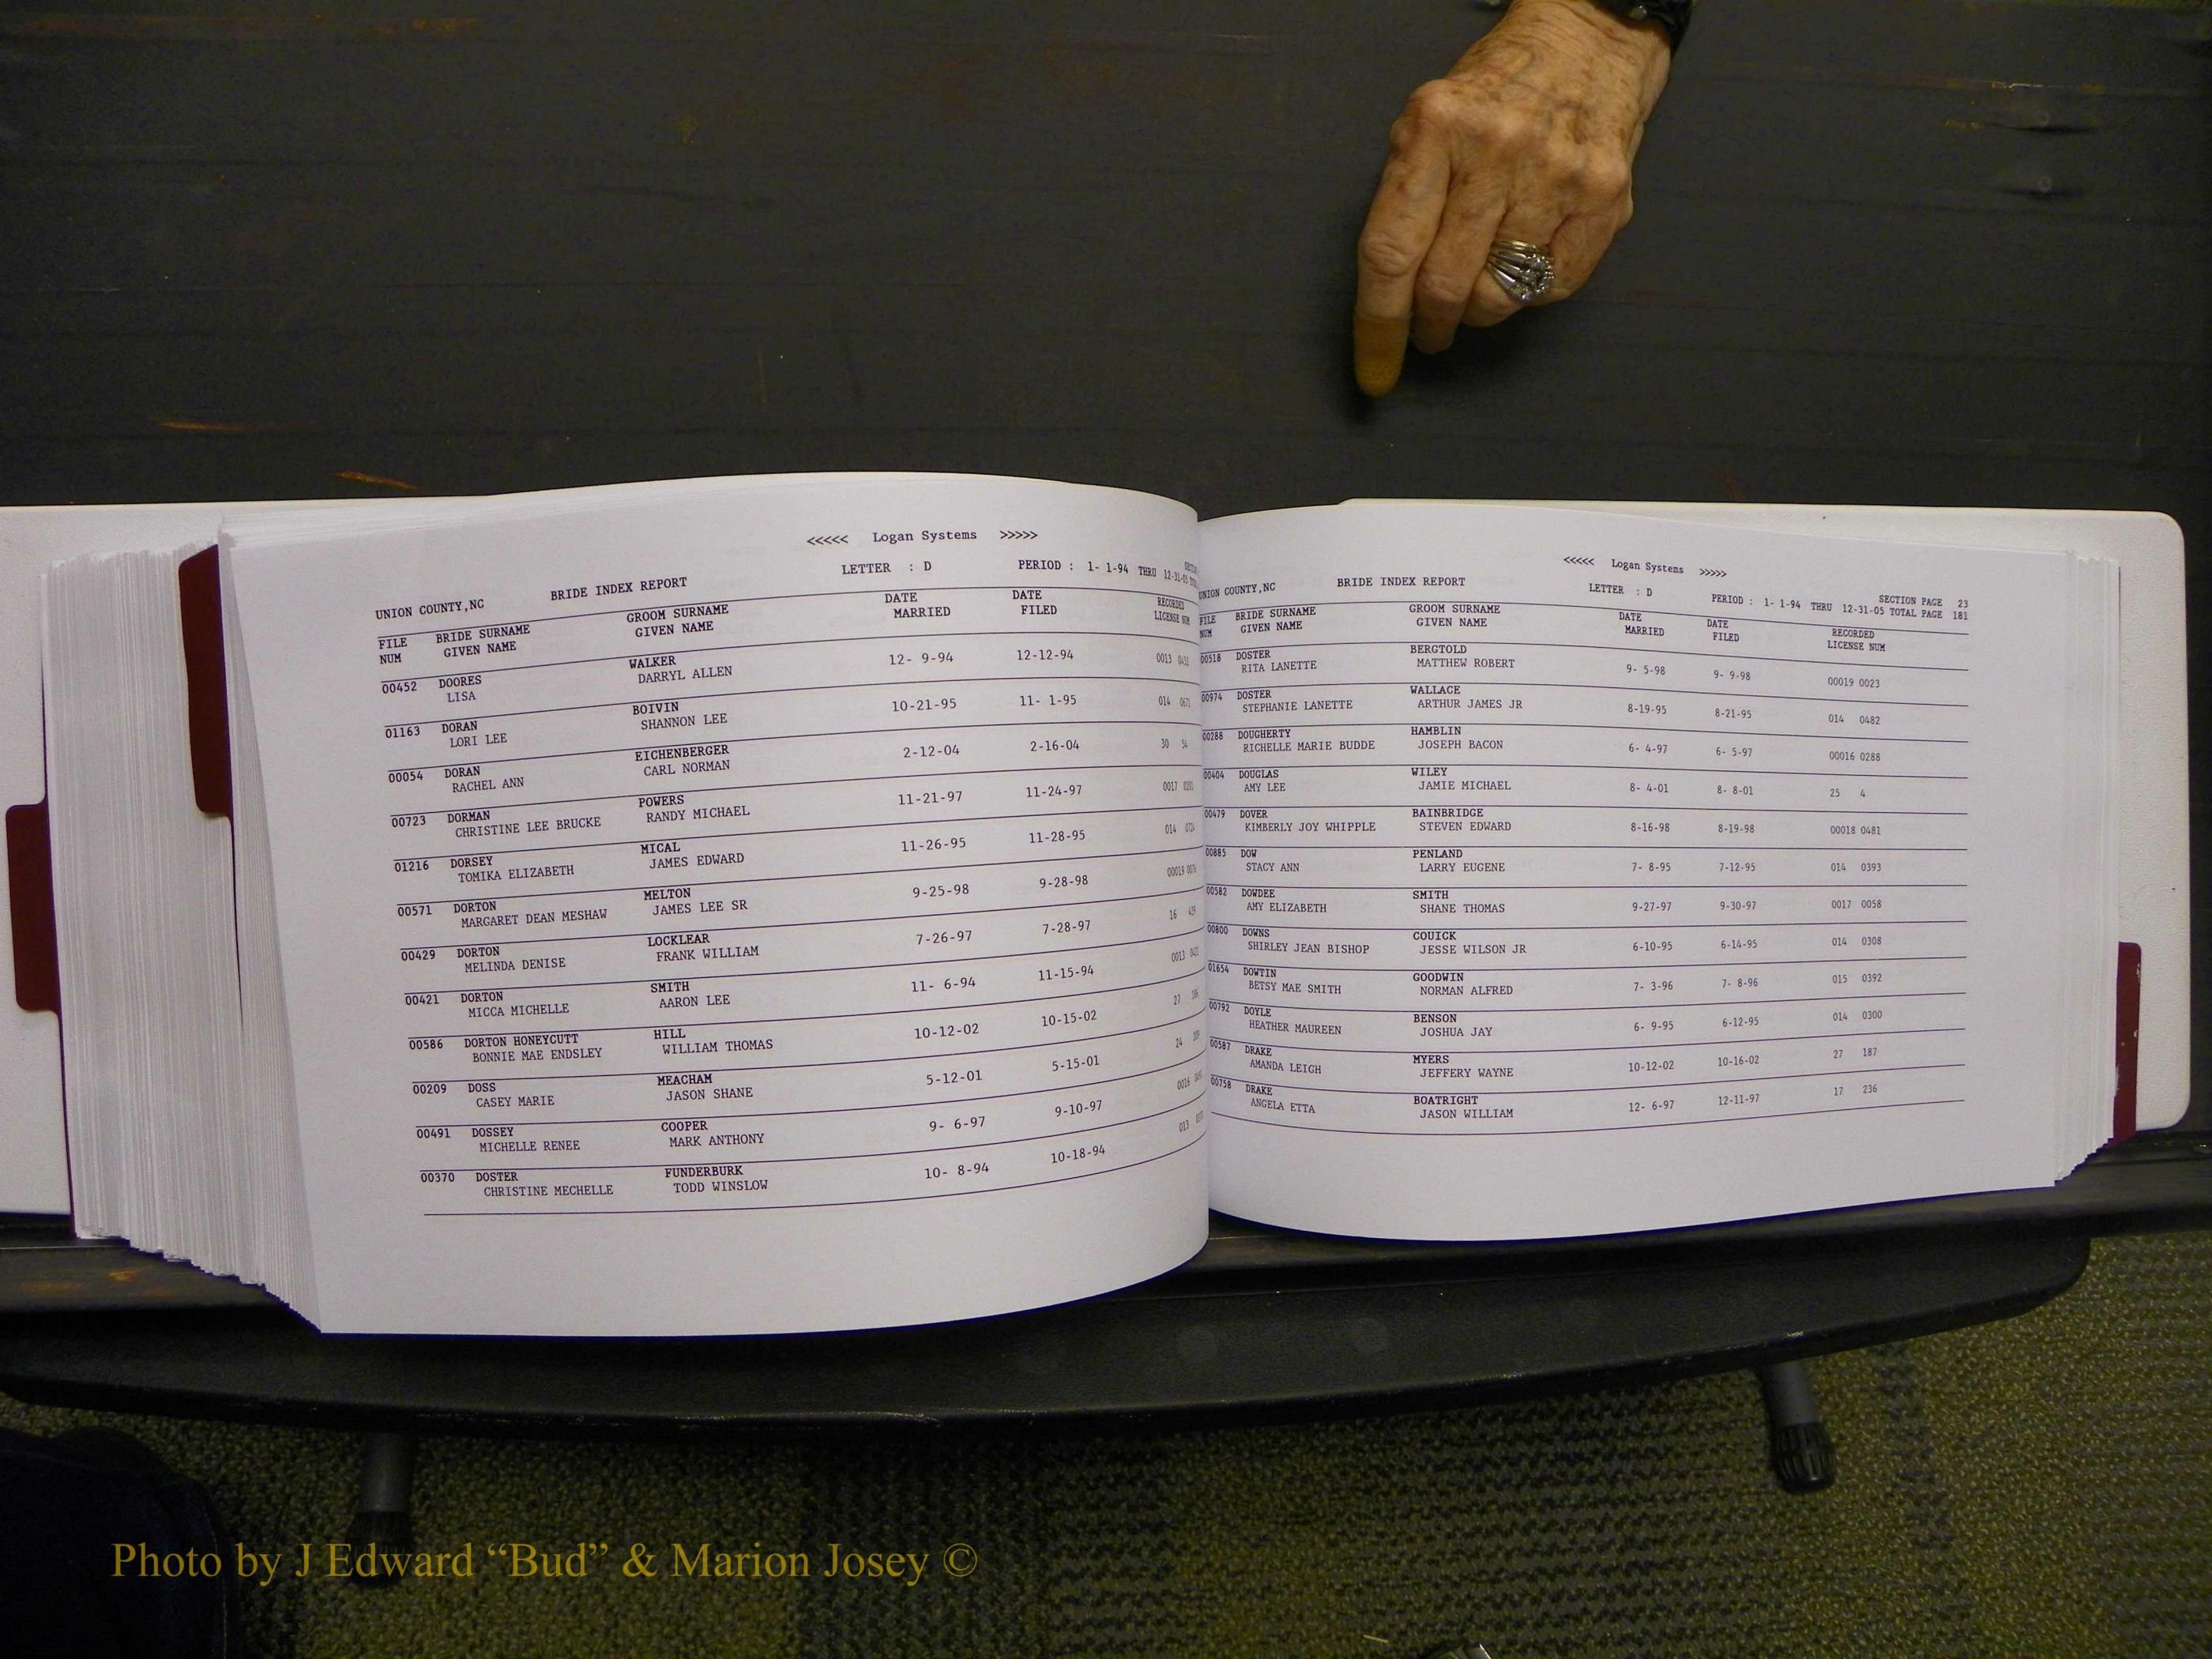 <<<<< Logan Systems >>>>>
UNION COUNTY,NC BRIDE INDEX REPORT LETTER : D PERIOD : 1- 1-94 THRU 12-31-05
FILE BRIDE SURNAME GROOM SURNAME DATE DATE RECORDED
NUM GIVEN NAME GIVEN NAME MARRIED FILED LICENSE NUM
00452 DOORES WALKER 12- 9-94 12-12-94 0013
LISA DARRYL ALLEN
01163 DORAN BOIVIN 10-21-95 11- 1-95 014
LORI LEE SHANNON LEE
00054 DORAN EICHENBERGER 2-12-04 2-16-04 30 54
RACHEL ANN CARL NORMAN
00723 DORMAN POWERS 11-21-97 11-24-97 0017
CHRISTINE LEE BRUCKE RANDY MICHAEL
01216 DORSEY MICAL 11-26-95 11-28-95 014
TOMIKA ELIZABETH JAMES EDWARD
00571 DORTON MELTON 9-25-98 9-28-98 00019
MARGARET DEAN MESHAW JAMES LEE SR
00429 DORTON LOCKLEAR 7-26-97 7-28-97 16
MELINDA DENISE FRANK WILLIAM
00421 DORTON SMITH 11- 6-94 11-15-94 0013
MICCA MICHELLE AARON LEE
00586 DORTON HONEYCUTT HILL 10-12-02 10-15-02 27
BONNIE MAE ENDSLEY WILLIAM THOMAS
00209 DOSS MEACHAM 5-12-01 5-15-01 24
CASEY MARIE JASON SHANE
00491 DOSSEY COOPER 9- 6-97 9-10-97 0016
MICHELLE RENEE MARK ANTHONY
00370 DOSTER FUNDERBURK 10- 8-94 10-18-94 013
CHRISTINE MECHELLE TODD WINSLOW
<<<<< Logan Systems >>>>>
UNION COUNTY,NC BRIDE INDEX REPORT LETTER : D SECTION PAGE 23
PERIOD : 1- 1-94 THRU 12-31-05 TOTAL PAGE 181
FILE BRIDE SURNAME GROOM SURNAME DATE DATE RECORDED
NUM GIVEN NAME GIVEN NAME MARRIED FILED LICENSE NUM
00518 DOSTER BERGTOLD 9- 5-98 9- 9-98 00019 0023
RITA LANETTE MATTHEW ROBERT
00974 DOSTER WALLACE 8-19-95 8-21-95 014 0482
STEPHANIE LANETTE ARTHUR JAMES JR
00288 DOUGHERTY HAMBLIN 6- 4-97 6- 5-97 00016 0288
RICHELLE MARIE BUDDE JOSEPH BACON
00404 DOUGLAS WILEY 8- 4-01 8- 8-01 25 4
AMY LEE JAMIE MICHAEL
00479 DOVER BAINBRIDGE 8-16-98 8-19-98 00018 0481
KIMBERLY JOY WHIPPLE STEVEN EDWARD
00885 DOW PENLAND 7- 8-95 7-12-95 014 0393
STACY ANN LARRY EUGENE
00582 DOWDEE SMITH 9-27-97 9-30-97 0017 0058
AMY ELIZABETH SHANE THOMAS
00800 DOWNS COUICK 6-10-95 6-14-95 014 0308
SHIRLEY JEAN BISHOP JESSE WILSON JR
01654 DOWTIN GOODWIN 7- 3-96 7- 8-96 015 0392
BETSY MAE SMITH NORMAN ALFRED
00792 DOYLE BENSON 6- 9-95 6-12-95 014 0300
HEATHER MAUREEN JOSHUA JAY
00587 DRAKE MYERS 10-12-02 10-16-02 27 187
AMANDA LEIGH JEFFERY WAYNE
00758 DRAKE BOATRIGHT 12- 6-97 12-11-97 17 236
ANGELA ETTA JASON WILLIAM
Photo by J Edward “Bud” & Marion Josey ©